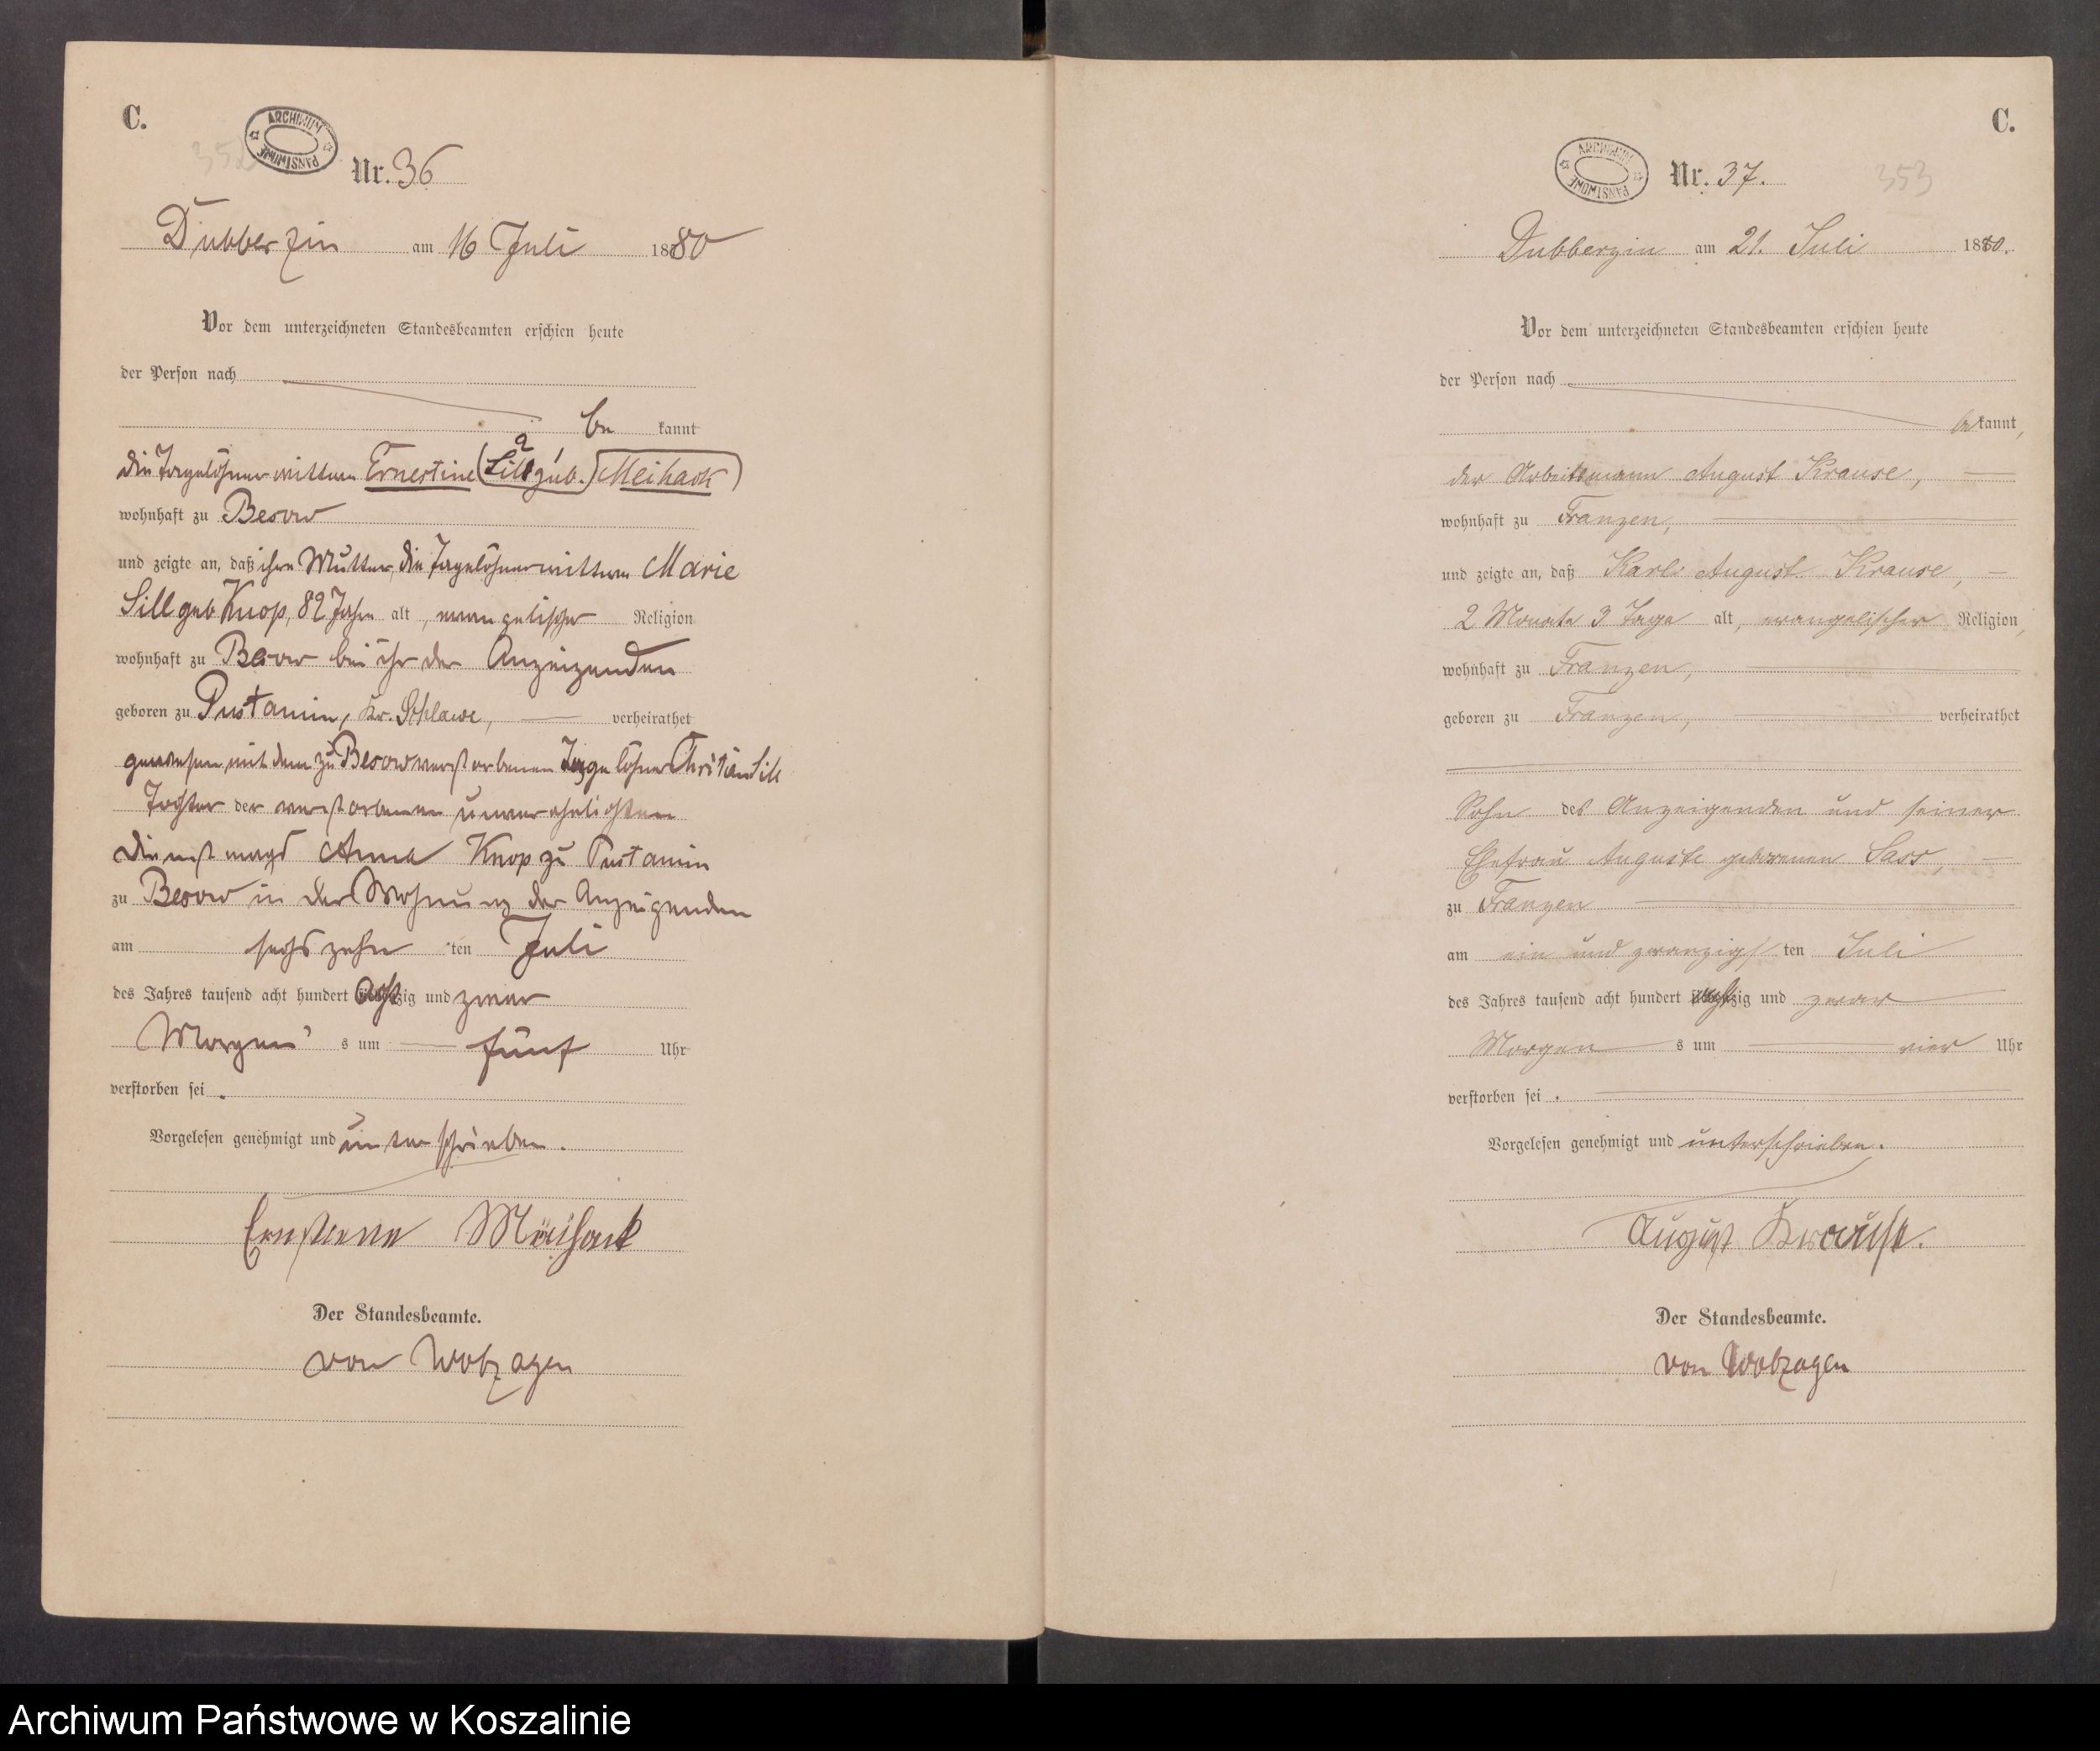 C.
352
ARCHIWUM
PAŃSTWOWE
Nr. 36
Dubberzin am 16 Juli 1880
Vor dem unterzeichneten Standesbeamten erschien heute
der Person nach
be kannt
die Tagelöhnerwittwe Ernestine (Sill geb.) Meihack
wohnhaft zu Besow
und zeigte an, daß ihre Mutter, die Tagelöhnerwittwe Marie
Sill geb Knop, 82 Jahre alt, evangelischer Religion
wohnhaft zu Besow bei ihr der Anzeigenden
geboren zu Pustamin, Kr. Schlawe, verheirathet
gewesen mit dem zu Besow verstorbenen Tagelöhner Christian Sill
Tochter der verstorbenen unverehelichten
Dienstmagd Anna Knop zu Pustamin
zu Besow in der Wohnung der Anzeigenden
am sechszehn ten Juli
des Jahres tausend acht hundert achtzig und zwar
Morgens s um fünf Uhr
verstorben sei.
Vorgelesen genehmigt und unterschrieben.
Ernstiene Meihack
Der Standesbeamte.
von Wobzagen
C.
353
ARCHIWUM
PAŃSTWOWE
Nr. 37.
Dubberzin am 21. Juli 1880.
Vor dem unterzeichneten Standesbeamten erschien heute
der Person nach
be kannt,
der Arbeitsmann August Krause,
wohnhaft zu Franzen,
und zeigte an, daß Karl August Krause,
2 Monate 3 Tage alt, evangelischer Religion,
wohnhaft zu Franzen,
geboren zu Franzen, verheirathet
Sohn des Anzeigenden und seiner
Ehefrau Auguste geborenen Sass,
zu Franzen
am ein und zwanzigs ten Juli
des Jahres tausend acht hundert achtzig und zwar
Morgen s um vier Uhr
verstorben sei.
Vorgelesen genehmigt und unterschrieben.
August Krause.
Der Standesbeamte.
von Wobzagen
Archiwum Państwowe w Koszalinie